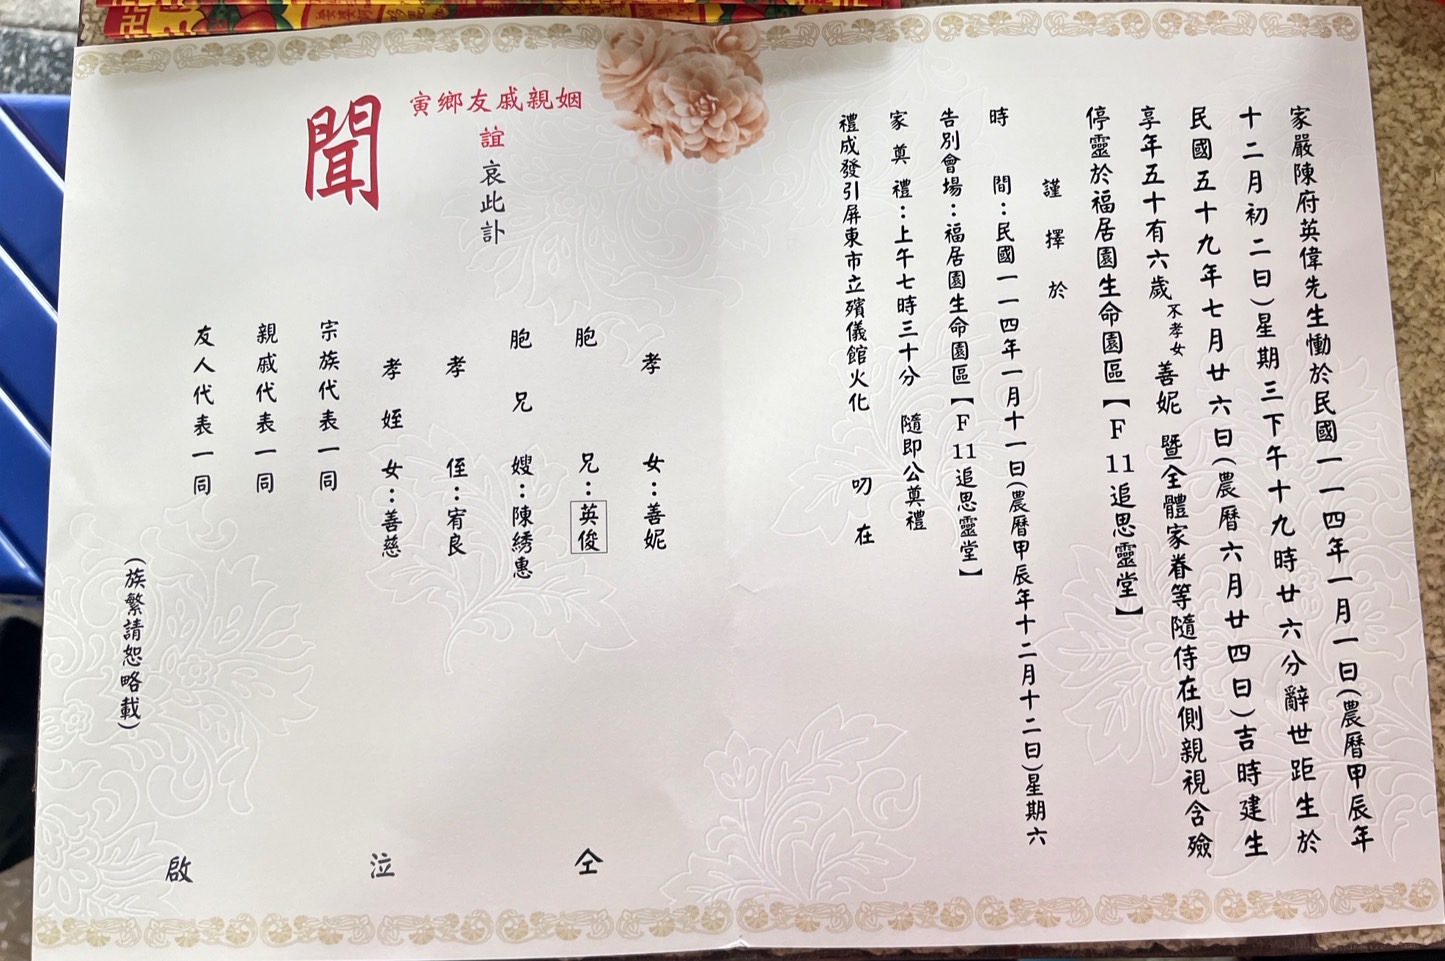 家嚴陳府英偉先生慟於民國一一四年一月一日(農曆甲辰年
十二月初二日)星期三下午十九時廿六分辭世距生於
民國五十九年七月廿六日(農曆六月廿四日)吉時建生
享年五十有六歲不孝女善妮 暨全體家眷等隨侍在側親視含殮
停靈於福居園生命園區【F 11追思靈堂】
謹擇於
時間：民國一一四年一月十一日(農曆甲辰年十二月十二日)星期六
告別會場：福居園生命園區【F 11追思靈堂】
家奠禮：上午七時三十分 隨即公奠禮
禮成發引屏東市立殯儀館火化
叨在
姻親戚友鄉寅
誼哀此訃
聞
孝女：善妮
胞兄：英俊
胞兄嫂：陳綉惠
孝侄：宥良
孝姪女：善慈
宗族代表一同
親戚代表一同
友人代表一同
(族繁請恕略載)
仝泣啟